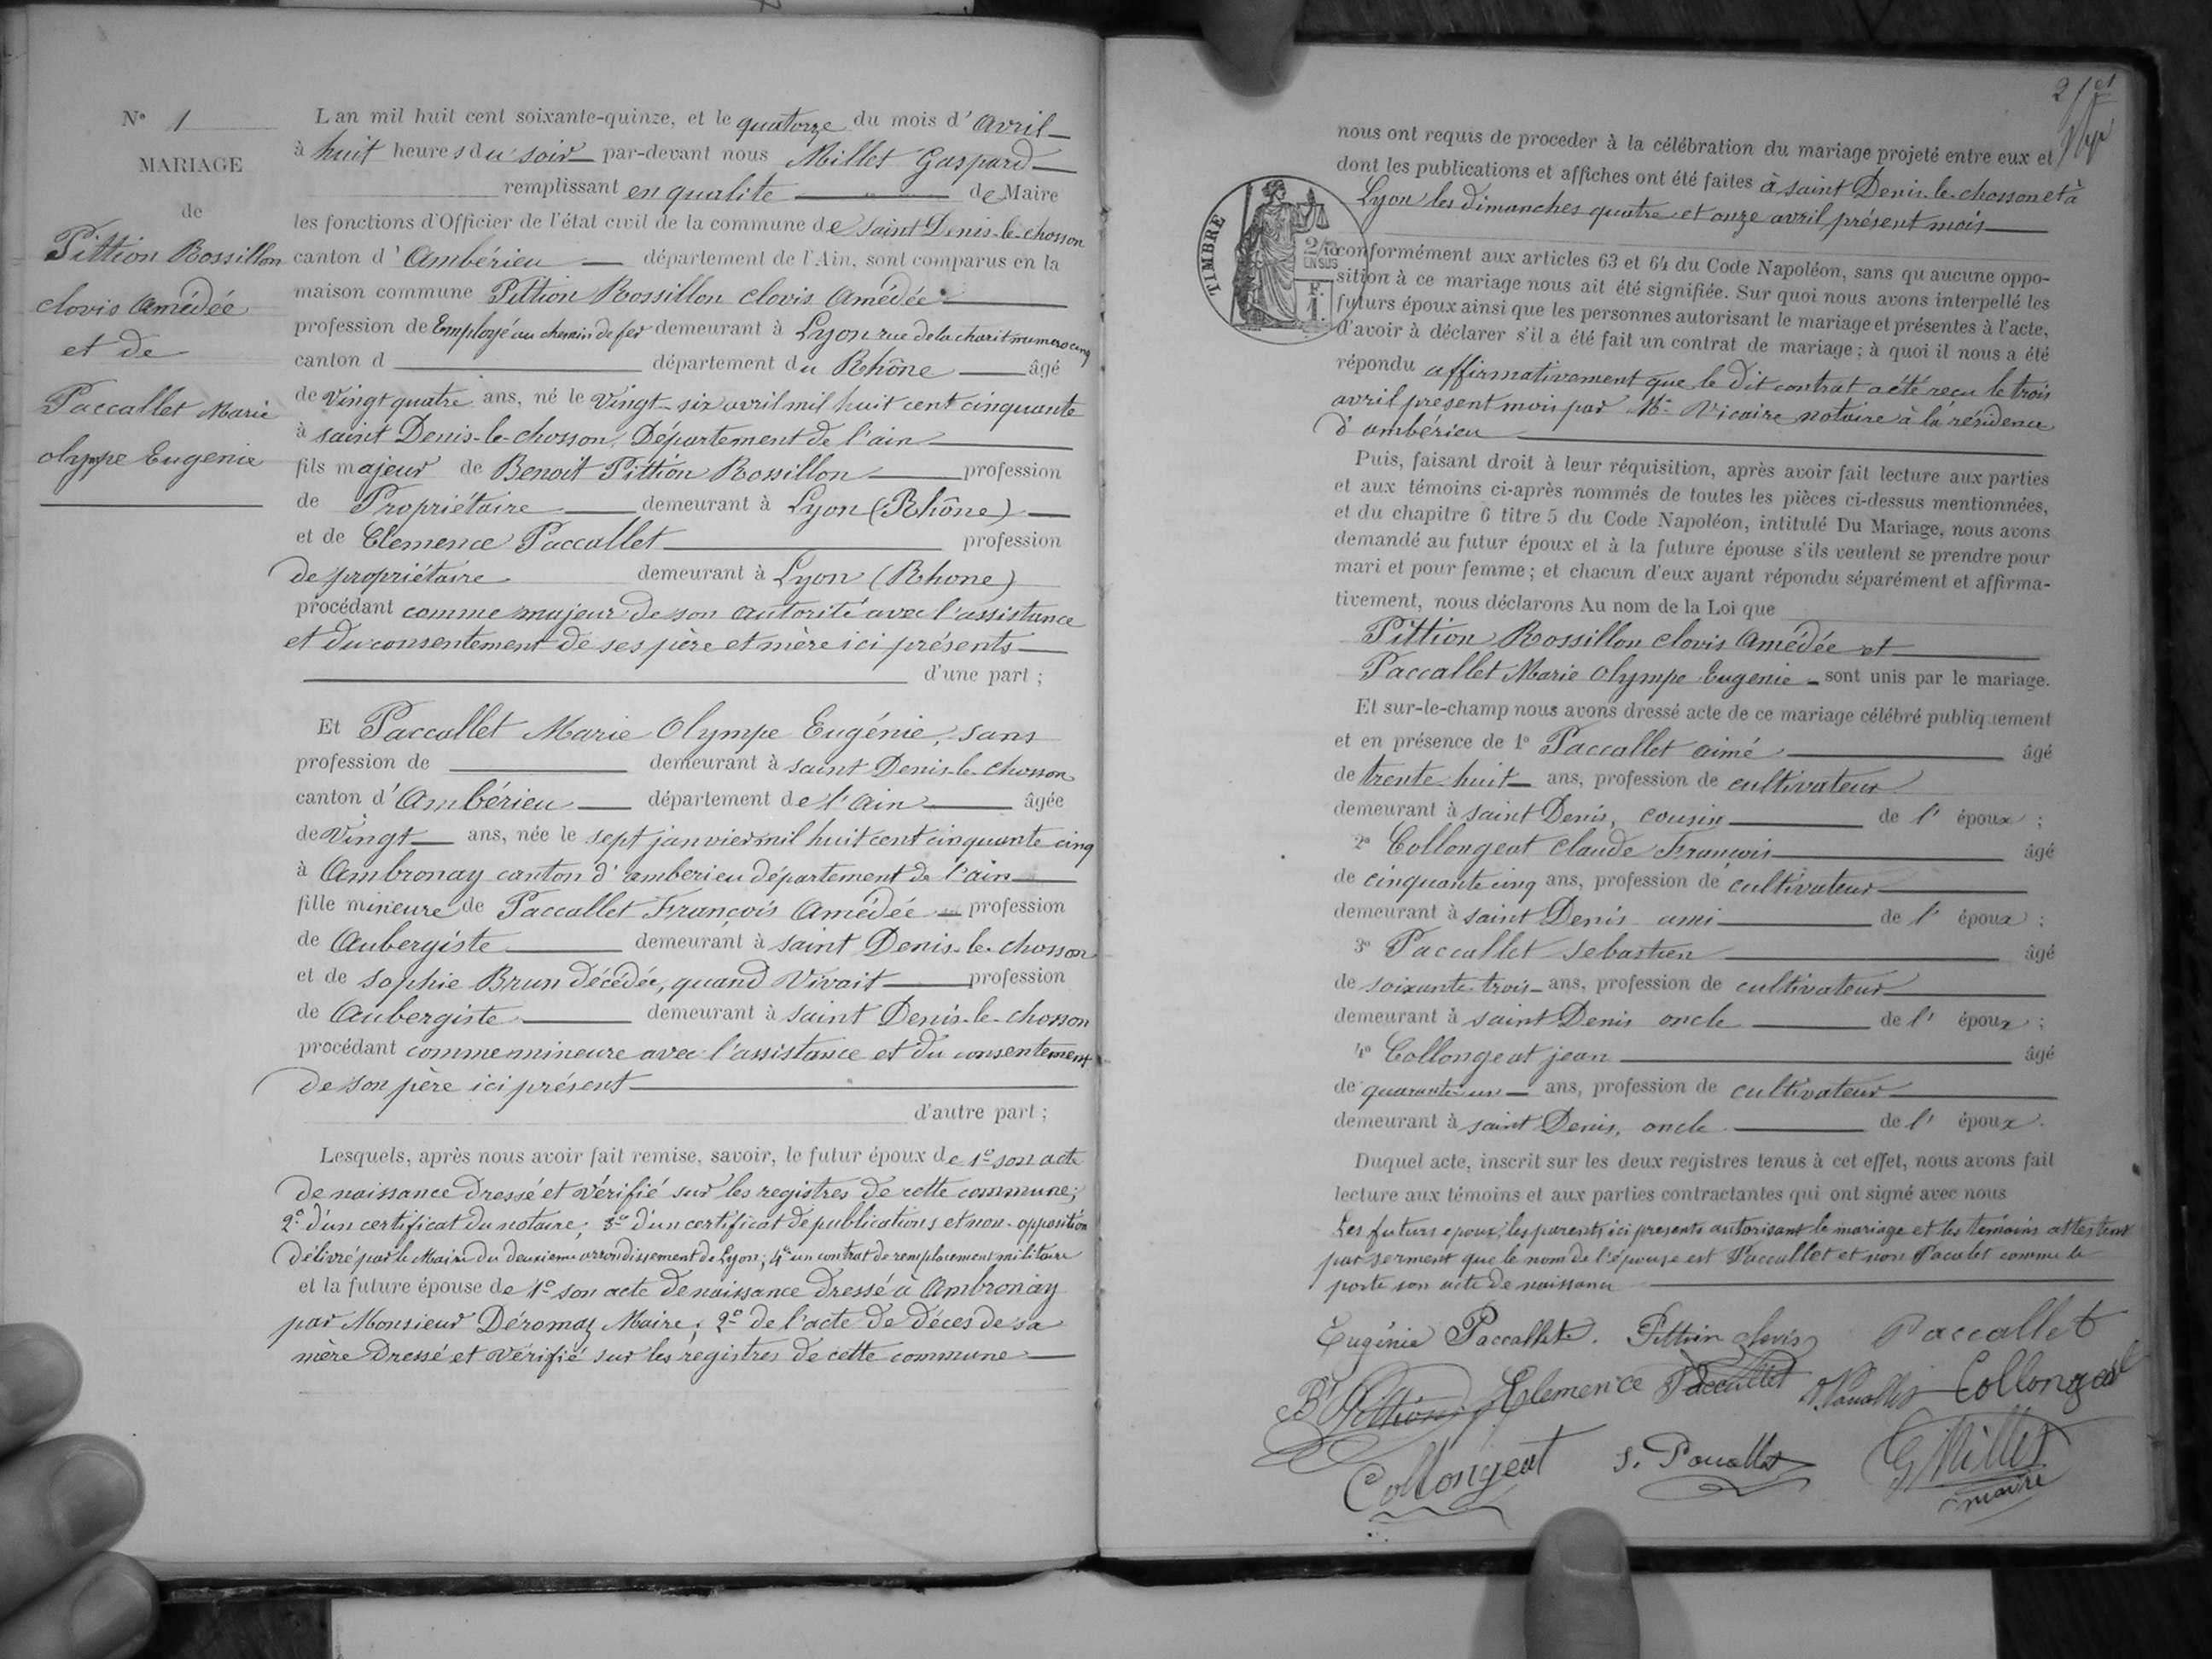 N° 1
MARIAGE
de
Pittion Rossillon
clovis Amédée
et de
Paccallet Marie
olympe Eugenie
L an mil huit cent soixante-quinze, et le quatorze du mois d' avril
à huit heures du soir par-devant nous Millet Gaspard
remplissant en qualite de Maire
les fonctions d'Officier de l'état civil de la commune de saint Denis-le-chosson
canton d' Ambérieu département de l'Ain, sont comparus en la
maison commune Pittion Rossillon clovis Amédée
profession de Employé au chemin de fer demeurant à Lyon rue de la charit numero cinq
canton d département du Rhône âgé
de Vingt quatre ans, né le Vingt-six avril mil huit cent cinquante
à saint Denis-le-chosson, Département de l'ain
fils majeur de Benoit Pittion Rossillon profession
de Propriétaire demeurant à Lyon (Rhône)
et de Clemence Paccallet profession
de propriétaire demeurant à Lyon (Rhone)
procédant comme majeur de son autorité avec l'assistance
et du consentement de ses père et mère ici présents
d'une part ;
Et Paccallet Marie Olympe Eugénie, sans
profession de demeurant à saint Denis-le-chosson
canton d' Ambérieu département de l'ain âgée
de Vingt ans, née le sept janvier mil huit cent cinquante cinq
à Ambronay canton d'amberieu département de l'ain
fille mineure de Paccallet François Amédée profession
de Aubergiste demeurant à saint Denis-le-chosson
et de sophie Brun décédée, quand Vivait profession
de Aubergiste demeurant à saint Denis-le-chosson
procédant comme mineure avec l'assistance et du consentement
de son père ici présent
d'autre part ;
Lesquels, après nous avoir fait remise, savoir, le futur époux de 1° son acte
de naissance dressé et vérifié sur les registres de cette commune;
2° d'un certificat du notaire; 3° d'un certificat de publications et non-opposition
délivré par le Maire du deuxieme arrondissement de Lyon; 4° un contrat de remplacement militaire
et la future épouse de 1° son acte de naissance dressé à Ambronay
par Monsieur Déromaz Maire; 2° de l'acte de décès de sa
mère dressé et vérifié sur les registres de cette commune
2
nous ont requis de proceder à la célébration du mariage projeté entre eux et
dont les publications et affiches ont été faites à saint Denis-le-chosson et à
Lyon les dimanches quatre et onze avril présent mois
TIMBRE
2/10
EN SUS
F.
1.
conformément aux articles 63 et 64 du Code Napoléon, sans qu aucune oppo-
sition à ce mariage nous ait été signifiée. Sur quoi nous avons interpellé les
futurs époux ainsi que les personnes autorisant le mariage et présentes à l'acte,
d'avoir à déclarer s'il a été fait un contrat de mariage ; à quoi il nous a été
répondu affirmativement que le dit contrat a été reçu le trois
avril présent mois par Me Vicaire notaire à la résidence
d'ambérieu
Puis, faisant droit à leur réquisition, après avoir fait lecture aux parties
et aux témoins ci-après nommés de toutes les pièces ci-dessus mentionnées,
et du chapitre 6 titre 5 du Code Napoléon, intitulé Du Mariage, nous avons
demandé au futur époux et à la future épouse s'ils veulent se prendre pour
mari et pour femme ; et chacun d'eux ayant répondu séparément et affirma-
tivement, nous déclarons Au nom de la Loi que
Pittion Rossillon clovis Amédée et
Paccallet Marie Olympe Eugenie sont unis par le mariage.
Et sur-le-champ nous avons dressé acte de ce mariage célébré publiquement
et en présence de 1° Paccallet aimé âgé
de trente huit ans, profession de cultivateur
demeurant à saint Denis, cousin de l' époux ;
2° Collongeat claude François âgé
de cinquante cinq ans, profession de cultivateur
demeurant à saint Denis ami de l' époux ;
3° Paccallet sebastien âgé
de soixante trois ans, profession de cultivateur
demeurant à saint Denis oncle de l' époux ;
4° Collongeat jean âgé
de quarante un ans, profession de cultivateur
demeurant à saint Denis, oncle de l' époux.
Duquel acte, inscrit sur les deux registres tenus à cet effet, nous avons fait
lecture aux témoins et aux parties contractantes qui ont signé avec nous
Les futurs epoux, les parents ici presents autorisant le mariage et les témoins attestent
par serment que le nom de l'épouse est Paccallet et non Pacalet comme le
porte son acte de naissance
Eugénie Paccallet. Pittion clovis Paccallet
Bt Pittion Clemence Paccallet Collongeat
Collongeat S. Pacallet G Millet
maire